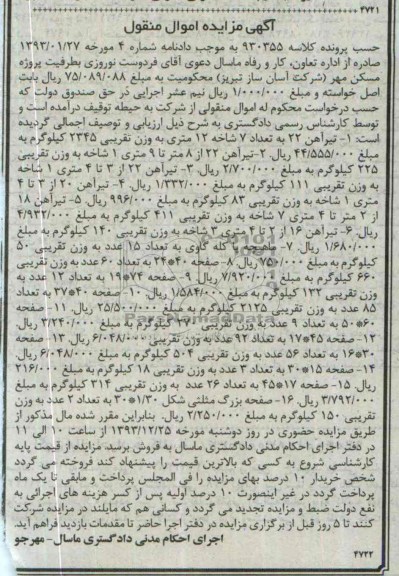 ۴۷۲۱
آگهی مزایده اموال منقول
حسب پرونده کلاسه ۹۳۰۳۵۵ به موجب دادنامه شماره ۴ مورخه ۱۳۹۳/۰۱/۲۷
صادره از اداره تعاون، کار و رفاه ماسال دعوی آقای فردوست نوروزی بطرفیت پروژه
مسکن مهر (شرکت آسان ساز تبریز) محکومیت به مبلغ ۷۵/۰۸۹/۰۸۸ ریال بابت
اصل خواسته و مبلغ ۱/۰۰۰/۰۰۰ ریال نیم عشر اجرایی در حق صندوق دولت که
حسب درخواست محکوم له اموال منقولی از شرکت به حیطه توقیف درآمده است و
توسط کارشناس رسمی دادگستری به شرح ذیل ارزیابی و توصیف اجمالی گردیده
است: ۱- تیرآهن ۲۲ به تعداد ۷ شاخه ۱۲ متری به وزن تقریبی ۲۳۴۵ کیلوگرم به
مبلغ ۴۴/۵۵۵/۰۰۰ ریال. ۲-تیرآهن ۲۲ از ۸ متر تا ۹ متری ۱ شاخه به وزن تقریبی
۲۲۵ کیلوگرم به مبلغ ۲/۷۰۰/۰۰۰ ریال. ۳- تیرآهن ۲۲ از ۳ تا ۴ متری ۱ شاخه
به وزن تقریبی ۱۱۱ کیلوگرم به مبلغ ۱/۳۳۲/۰۰۰ ریال. ۴- تیرآهن ۲۰ از ۳ تا ۴
متری ۱ شاخه به وزن تقریبی ۸۳ کیلوگرم به مبلغ ۹۹۶/۰۰۰ ریال. ۵- تیرآهن ۱۸
از ۲ متر تا ۴ متری ۷ شاخه به وزن تقریبی ۴۱۱ کیلوگرم به مبلغ ۴/۹۳۲/۰۰۰
ریال. ۶- تیرآهن ۱۶ از ۲ تا ۴ متری ۳ شاخه به وزن تقریبی ۱۴۰ کیلوگرم به مبلغ
۱/۶۸۰/۰۰۰ ریال. ۷- کله گاوی به تعداد ۱۵ عدد به وزن تقریبی ۵۰
کیلوگرم به مبلغ ۷۵۰/۰۰۰ ریال. ۸- صفحه ۴۰*۲۴ به تعداد ۶۰ عدد به وزن تقریبی
۶۶۰ کیلوگرم به مبلغ ۷/۹۲۰/۰۰۰ ریال. ۹- صفحه ۷۴*۱۹ به تعداد ۱۲ عدد به
وزن تقریبی ۱۳۲ کیلوگرم به مبلغ ۱/۵۸۴/۰۰۰ ریال. ۱۰- صفحه ۴۰*۳۷ به تعداد
۸۵ عدد به وزن تقریبی ۲۱۲۵ کیلوگرم به مبلغ ۲۵/۵۰۰/۰۰۰ ریال. ۱۱- صفحه
۶۰*۵۰ به تعداد ۹ عدد به وزن تقریبی کیلوگرم به مبلغ ۳/۲۴۰/۰۰۰ ریال.
۱۲- صفحه ۴۵*۱۷ به تعداد ۹۲ عدد به وزن تقریبی ۶/۰۴۸/۰۰۰ ریال. ۱۳- صفحه
۳۰*۱۶ به تعداد ۵۶ عدد به وزن تقریبی ۵۰۴ کیلوگرم به مبلغ ۶/۰۴۸/۰۰۰ ریال.
۱۴- صفحه ۱۵*۳۰ به تعداد ۳ عدد به وزن تقریبی ۱۸ کیلوگرم به مبلغ ۲۱۶/۰۰۰
ریال. ۱۵- صفحه ۱۷*۴۵ به تعداد ۲۶ عدد به وزن تقریبی ۳۱۴ کیلوگرم به مبلغ
۳/۷۹۲/۰۰۰ ریال. ۱۶- صفحه بزرگ مثلثی شکل ۱/۳۰*۳۰ به تعداد ۲ عدد به وزن
تقریبی ۱۵۰ کیلوگرم به مبلغ ۲/۲۵۰/۰۰۰ ریال. بنابراین مقرر شده مال مذکور از
طریق مزایده حضوری در روز دوشنبه مورخه ۱۳۹۳/۱۲/۲۵ از ساعت ۱۰ الی ۱۱
در دفتر اجرای احکام مدنی دادگستری ماسال به فروش برسد. مزایده از قیمت پایه
کارشناسی شروع به کسی که بالاترین قیمت را پیشنهاد کند فروخته می گردد
شخص خریدار ۱۰ درصد بهای مزایده را فی المجلس پرداخت و مابقی تا یک ماه
پرداخت گردد در غیر اینصورت ۱۰ درصد اولیه پس از کسر هزینه های اجرائی به
نفع دولت ضبط و مزایده تجدید می گردد و کسانی هم که مایلند در مزایده شرکت
کنند تا ۵ روز قبل از برگزاری مزایده در دفتر اجرا حاضر تا مقدمات بازدید فراهم آید.
اجرای احکام مدنی دادگستری ماسال- مهرجو
۴۷۲۲